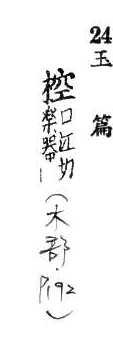 24
玉篇
椌 口江切
樂器
(木部·P192)